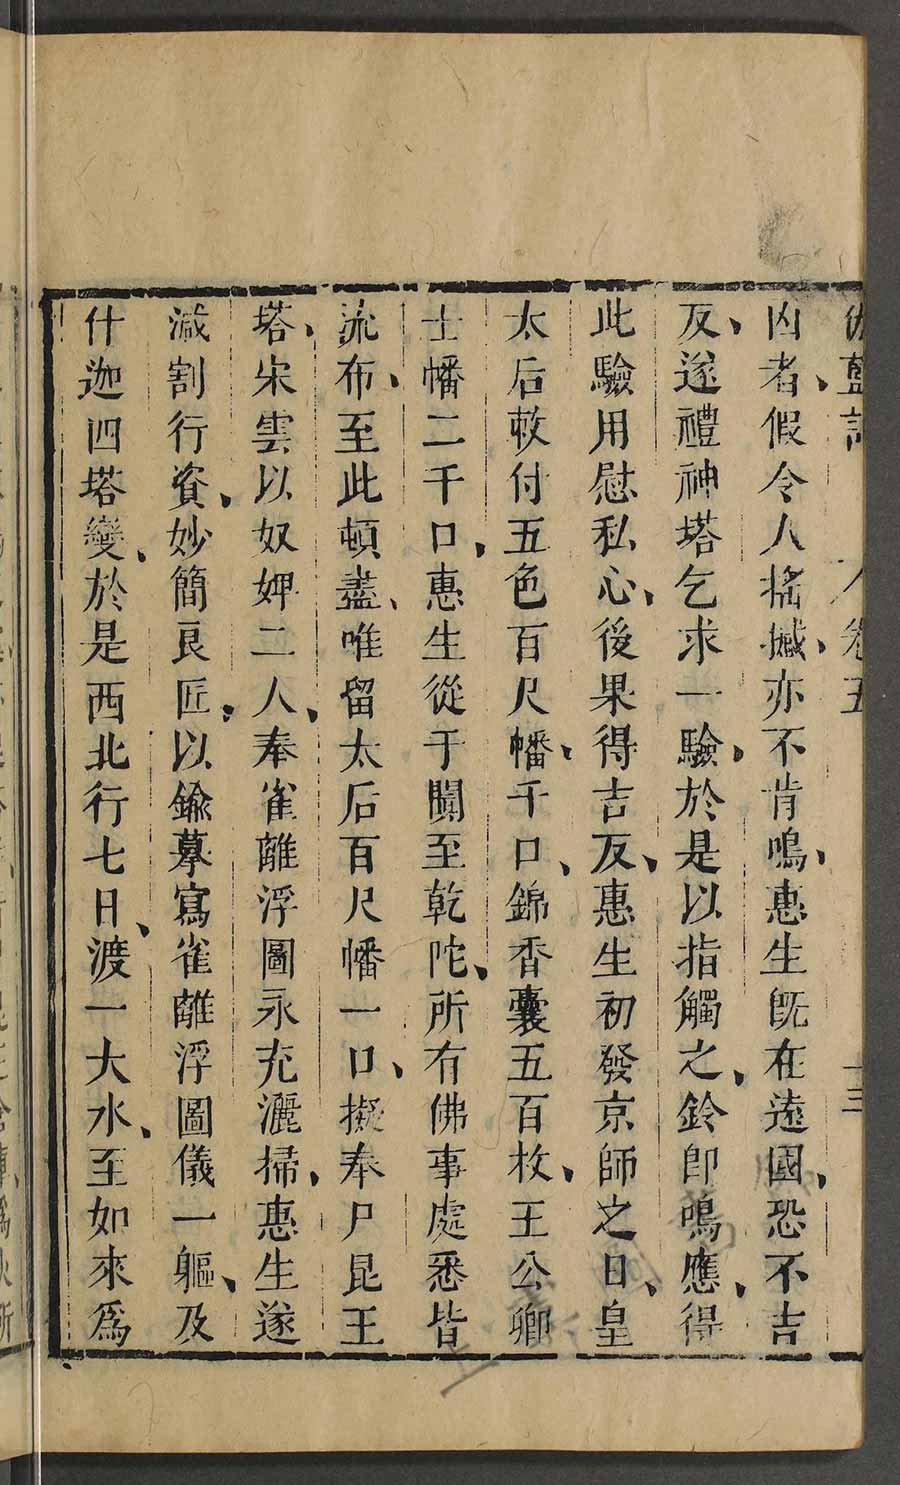 伽藍記 卷五 十三
凶者假令人搖撼亦不肯鳴惠生既在遠國恐不吉
反遂禮神塔乞求一驗於是以指觸之鈴即鳴應得
此驗用慰私心後果得吉反惠生初發京師之日皇
太后敕付五色百尺幡千口錦香囊五百枚王公卿
士幡二千口惠生從于闐至乾陀所有佛事處悉皆
流布至此頓盡唯留太后百尺幡一口擬奉尸毘王
塔宋雲以奴婢二人奉雀離浮圖永充灑掃惠生遂
減割行資妙簡良匠以鍮摹寫雀離浮圖儀一軀及
什迦四塔變於是西北行七日渡一大水至如來爲